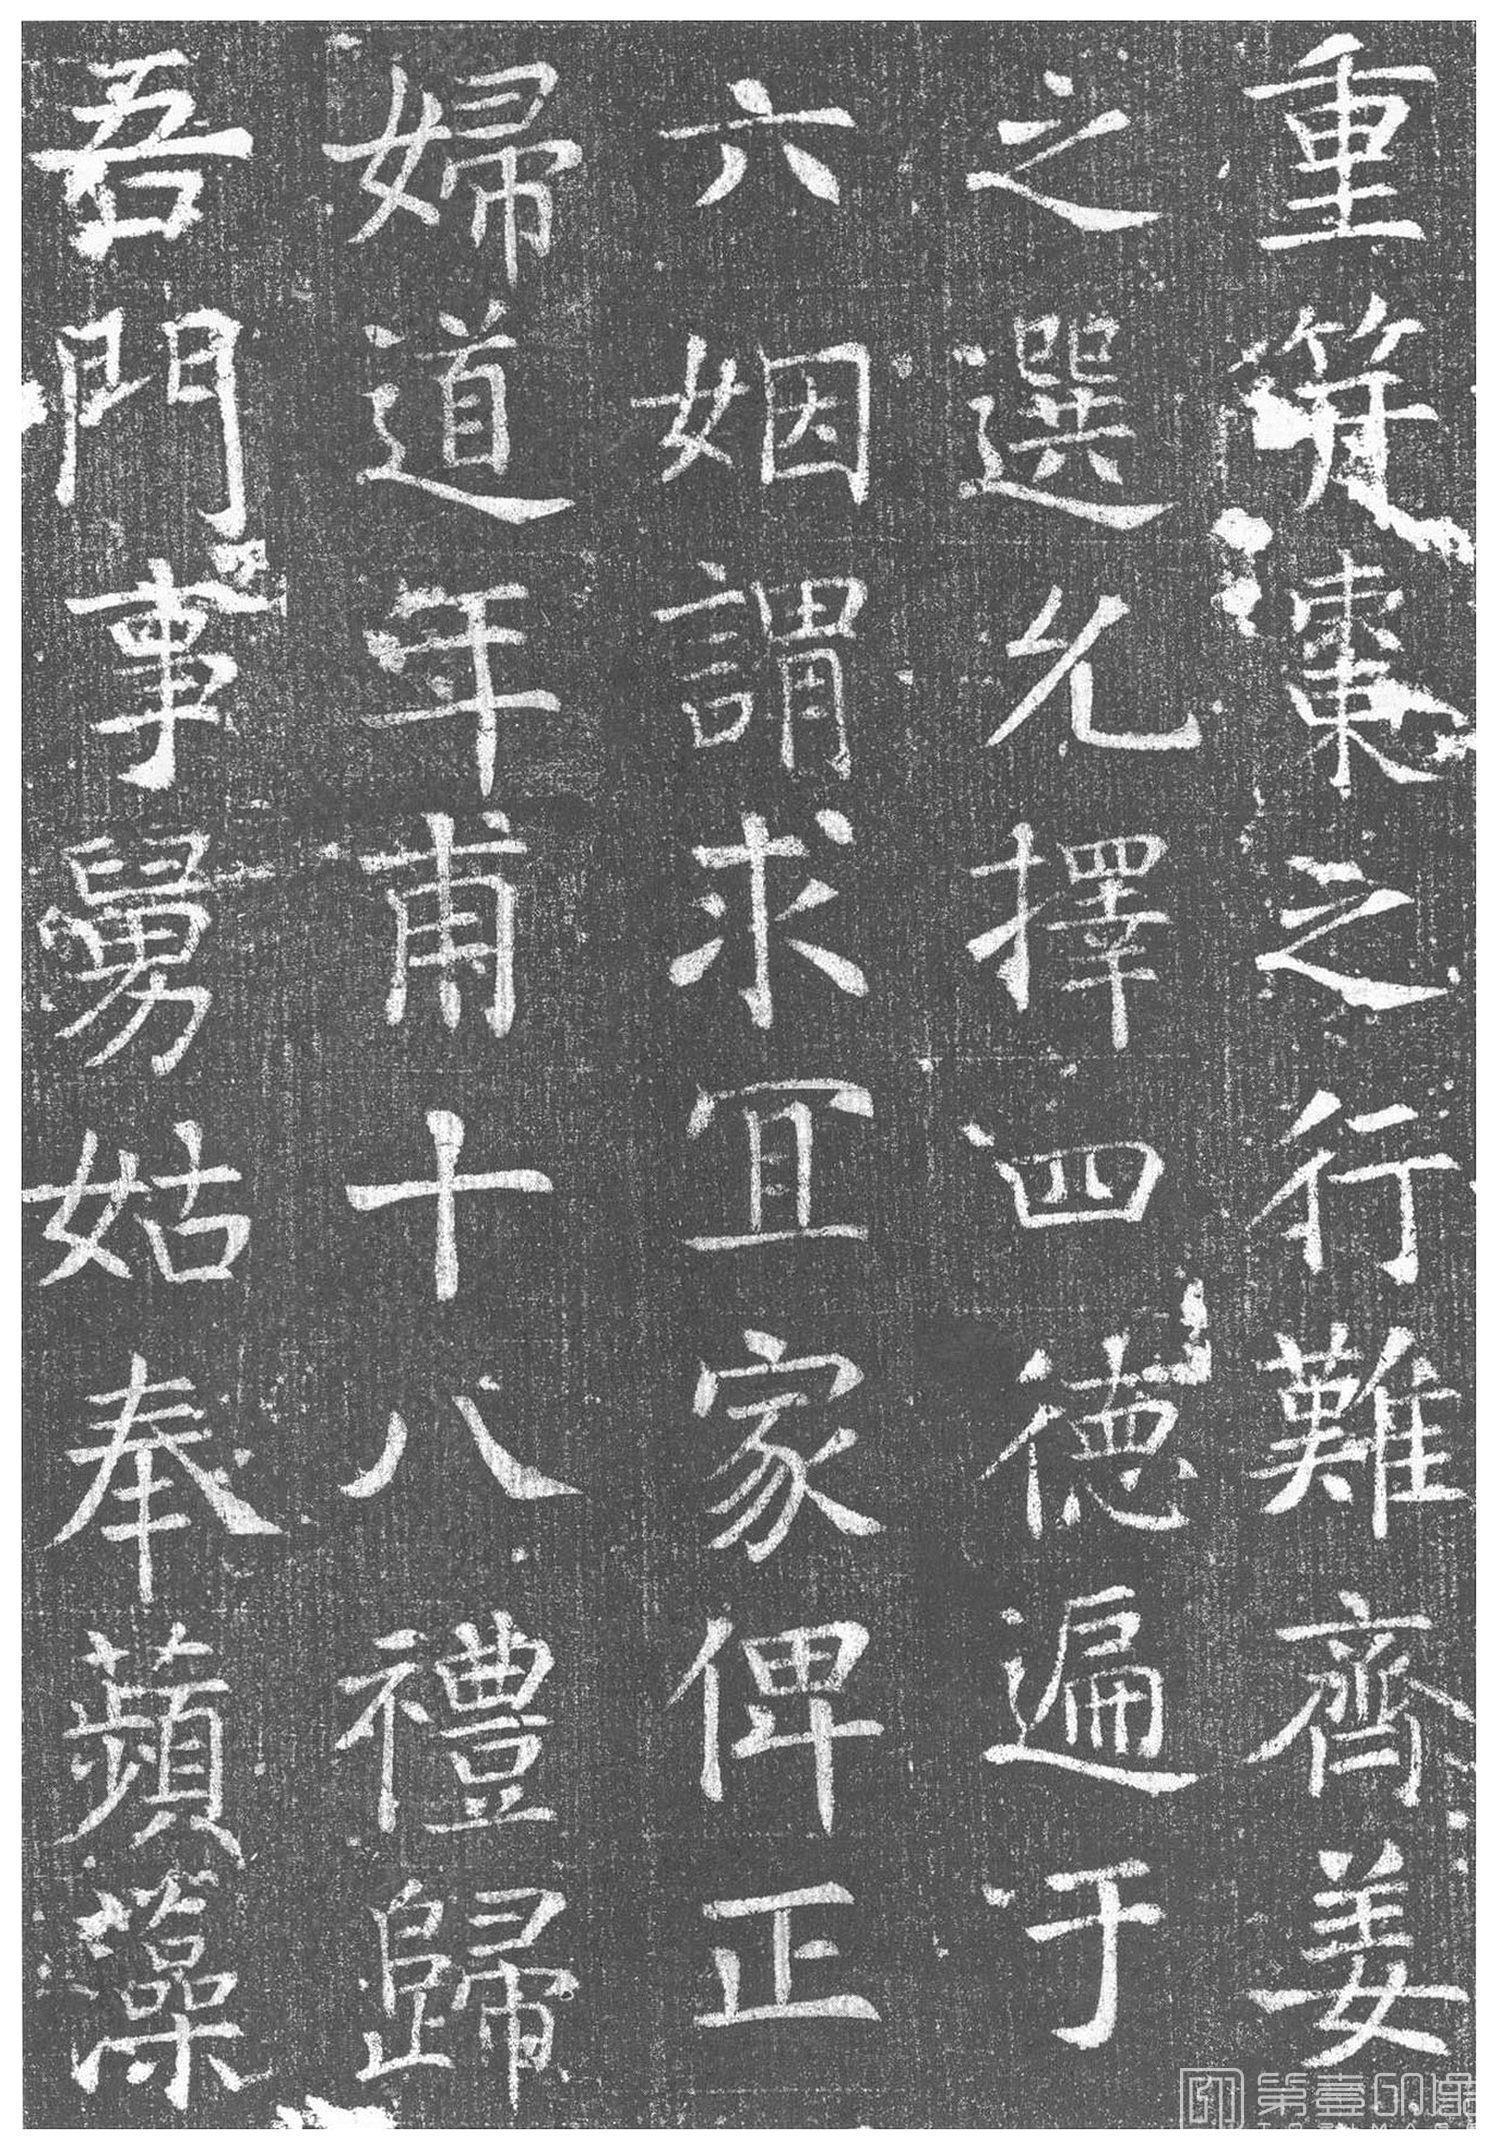 重符棗之行難齊姜
之選允擇四德遍于
六姻謂求冝家俾正
婦道年甫十八禮歸
吾門事舅姑奉蘋藻